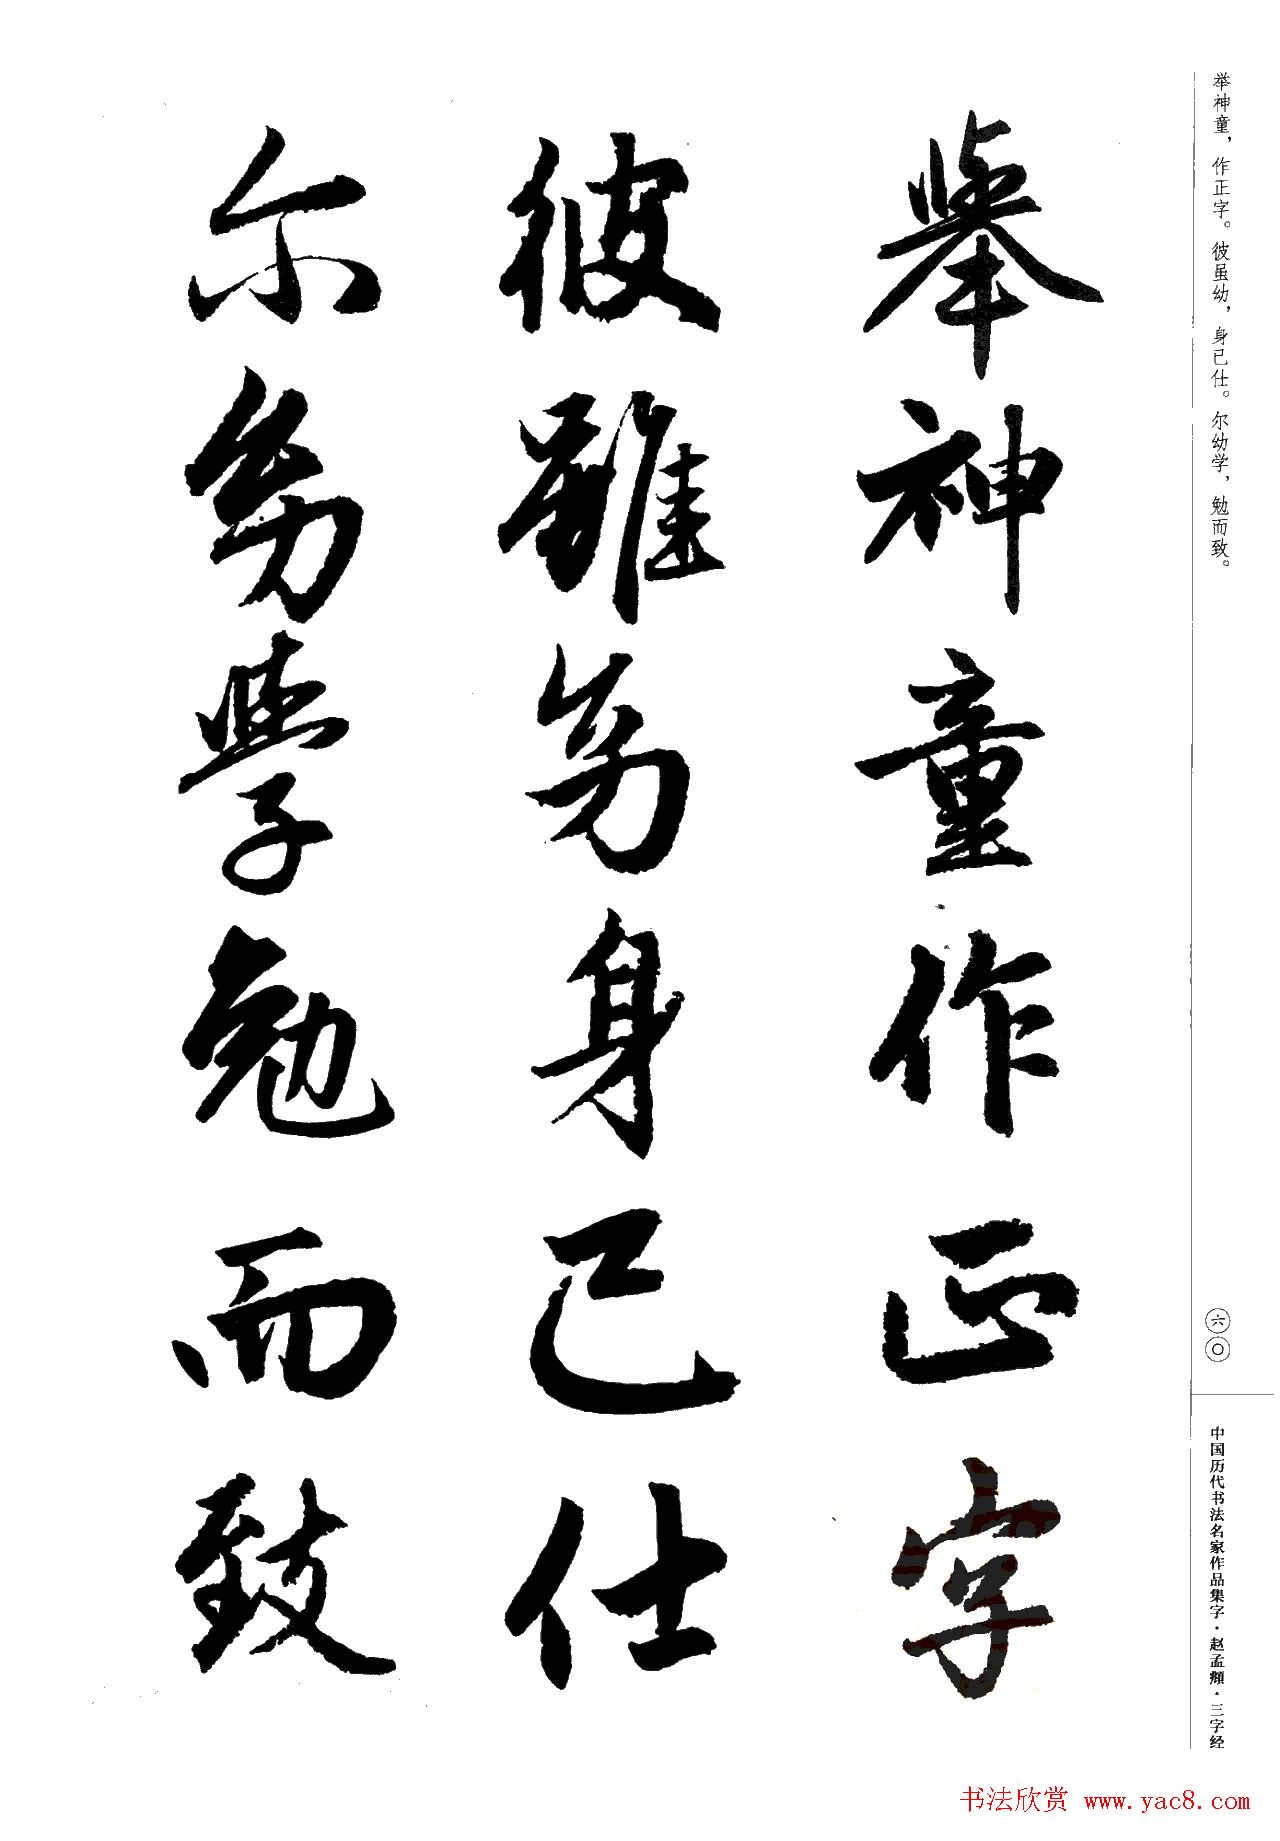 举神童，作正字。彼虽幼，身已仕。尔幼学，勉而致。
舉神童作正字
彼雖幼身已仕
尔幼學勉而致
六〇
中国历代书法名家作品集字·赵孟頫·三字经
书法欣赏 www.yac8.com